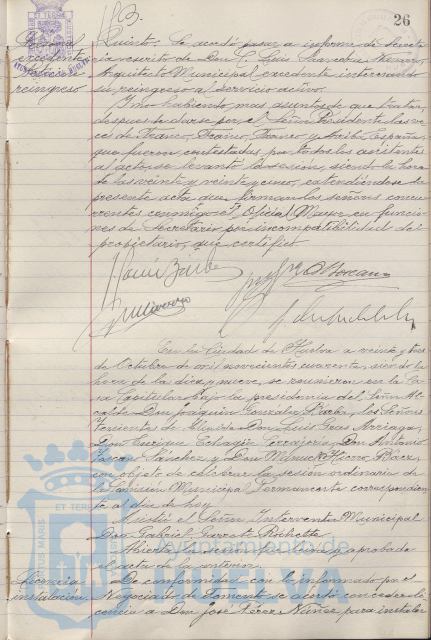 26
Quinto. Se acordó pasar a informe de Secreta
ría escrito de Don Luis Saavedra Navarro,
Arquitecto Municipal excedente interesando
su reingreso al servicio activo.
excedente
reingreso
Y no habiendo mas asuntos de que tratar,
despues de darse por el Señor Presidente las vo
ces de Franco, Franco, Franco y Arriba España,
que fueron contestadas por todos los asistentes
al acto, se levantó la sesión, siendo la hora
de las veinte y veinte y cinco, extendiéndose la
presente acta que firman los señores concu
rrentes conmigo el Oficial Mayor en funcio
nes de Secretario por incompatibilidad del
propietario, que certifico
En la Ciudad de Huelva a veinte y tres
de Octubre de mil novecientos cuarenta, siendo la
hora de las diez y nueve, se reunieron en la Ca
sa Capitular bajo la presidencia del Señor Al
calde Don Joaquín González Barba, los Señores
Tenientes de Alcalde Don Luis Seras Arriaga,
Don Enrique Echagüe Terrajería, Don Antonio
Sánchez y Don Manuel Hierro Báez,
con objeto de celebrar la sesión ordinaria de
la Comisión Municipal Permanente correspondien
te al día de hoy.
Asiste el Señor Interventor Municipal
Don Gabriel Garcete Rochette.
Abierta la sesión fue leída y aprobada
el acta de la anterior.
Licencia
instalación
De conformidad con lo informado por el
Negociado de Fomento se acertó conceder li
cencia a Don José Pérez Núñez para instalar
Ayuntamiento de
HUELVA